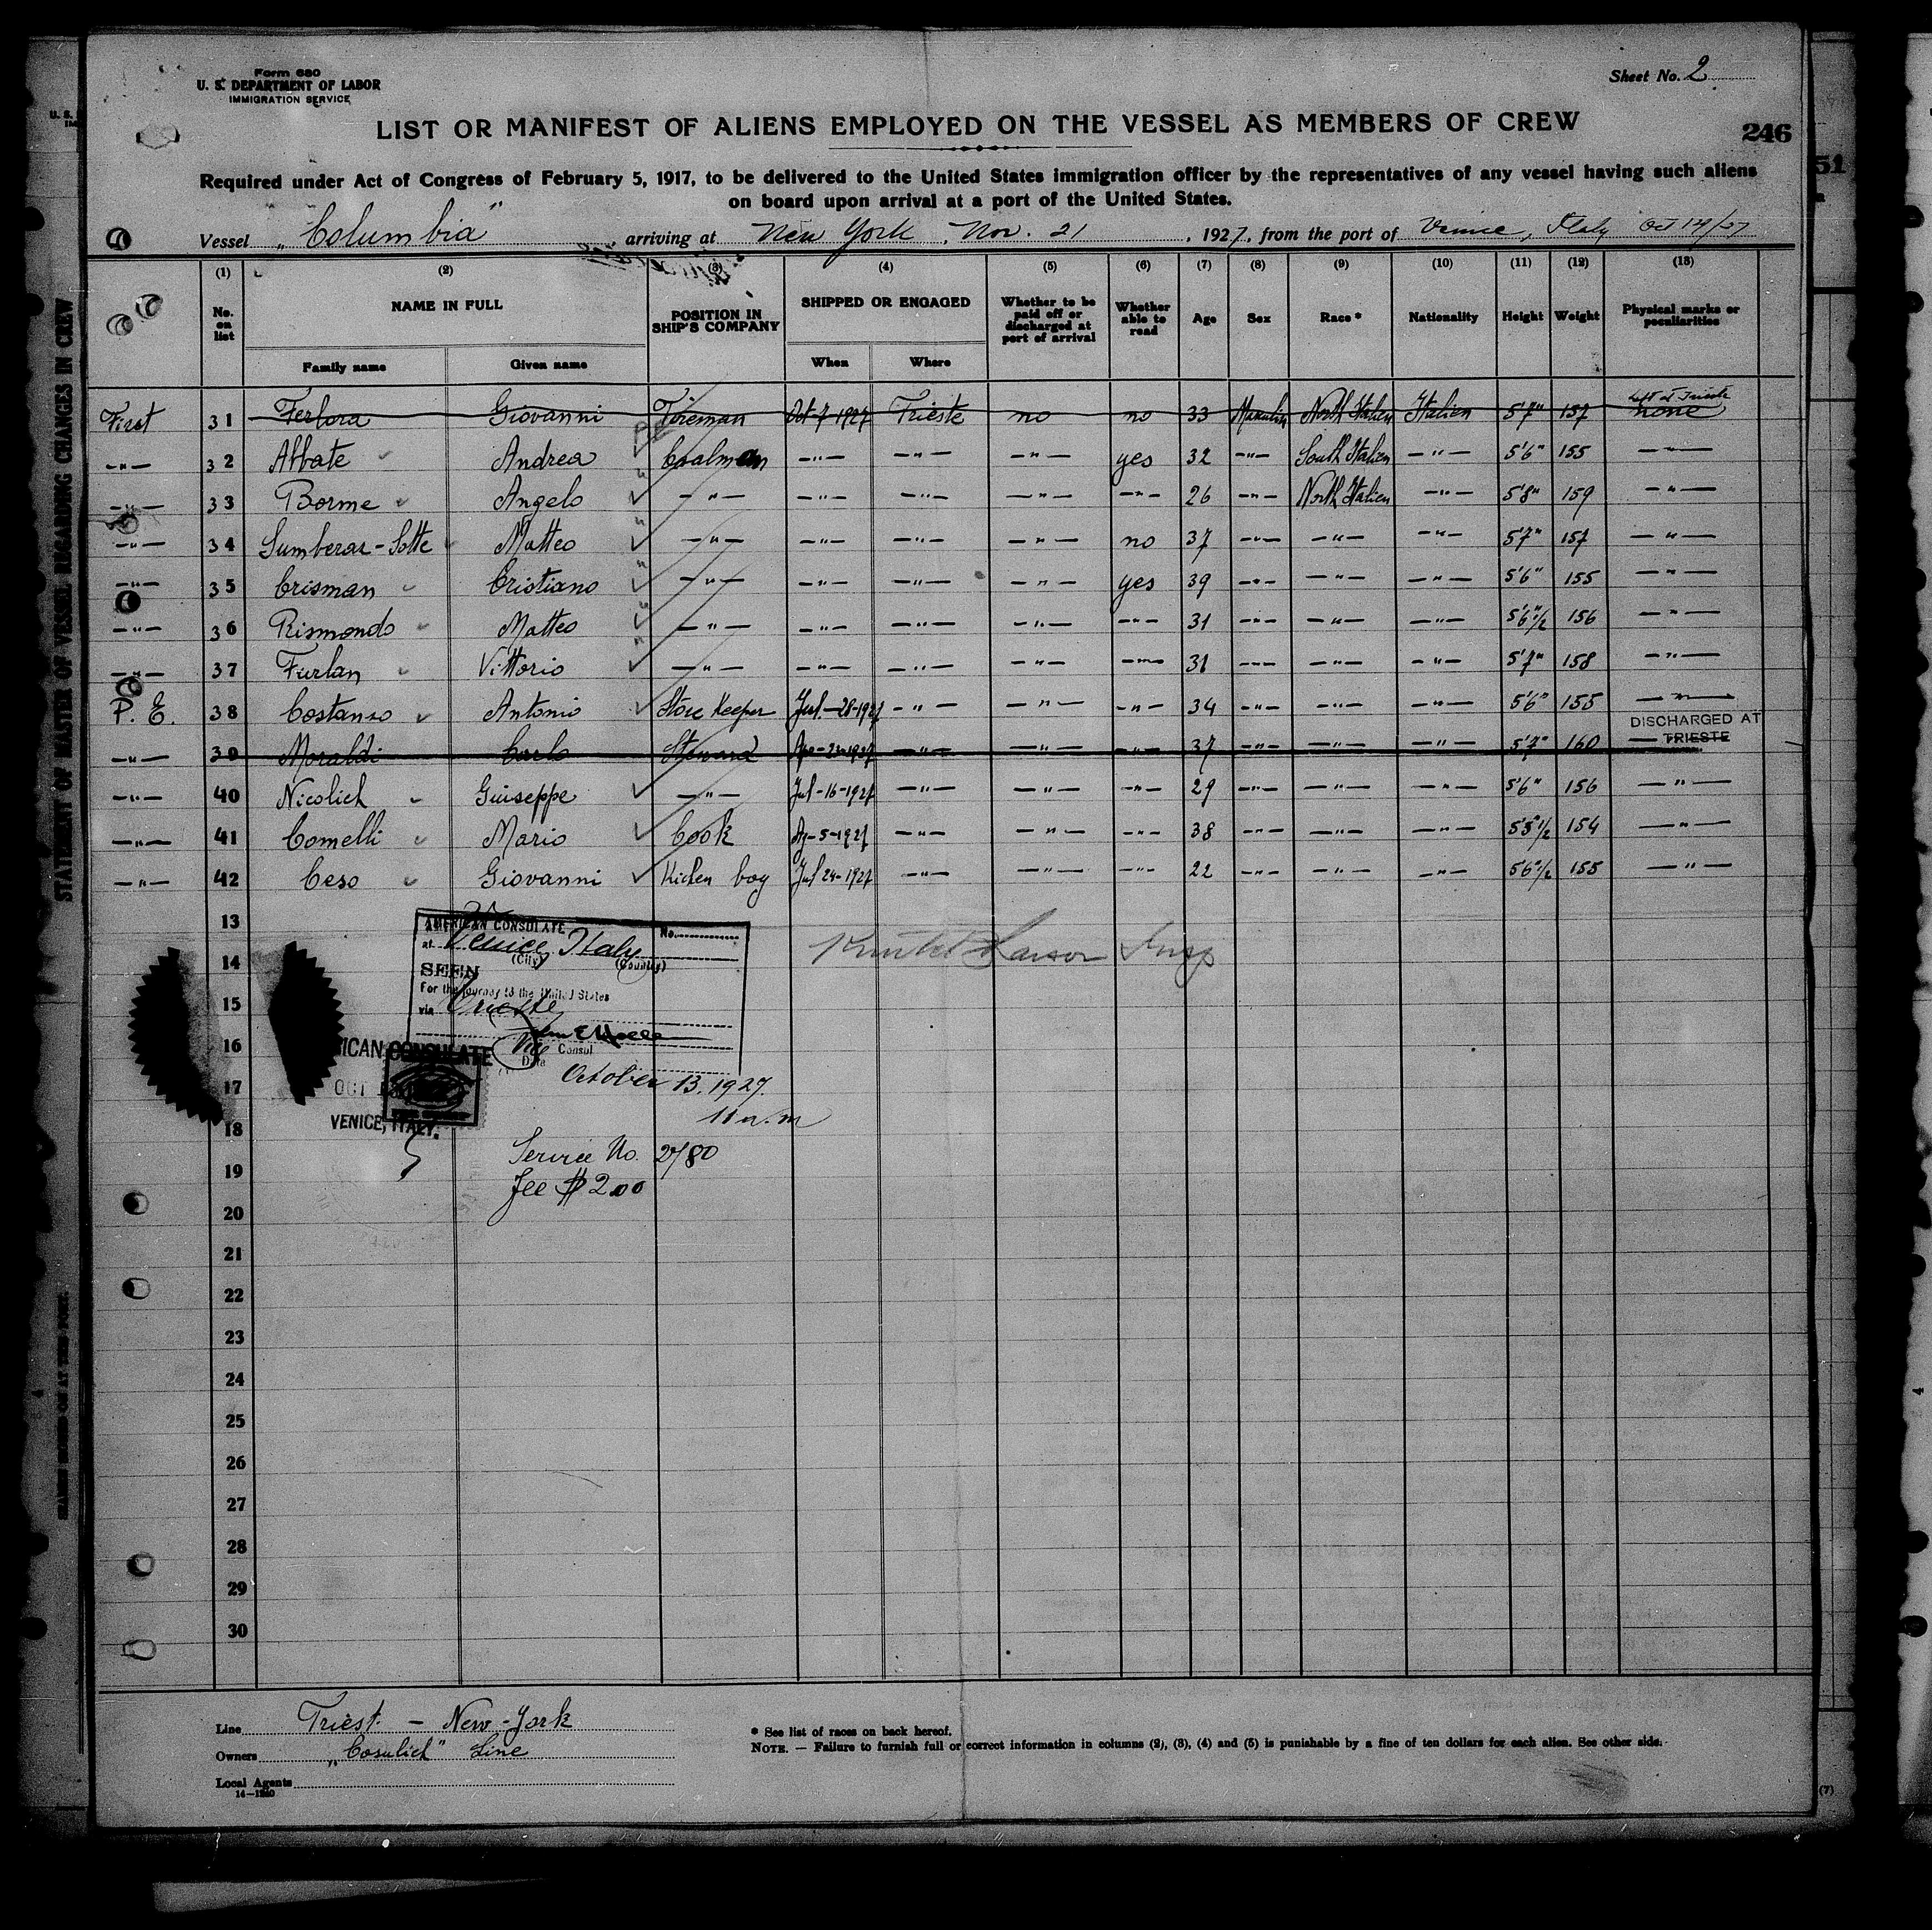 Form 680
U. S. DEPARTMENT OF LABOR
IMMIGRATION SERVICE
Sheet No. 2
LIST OR MANIFEST OF ALIENS EMPLOYED ON THE VESSEL AS MEMBERS OF CREW
246
Required under Act of Congress of February 5, 1917, to be delivered to the United States immigration officer by the representatives of any vessel having such aliens
on board upon arrival at a port of the United States.
Vessel „Columbia" arriving at New York, Nov. 21, 1927, from the port of Venice, Italy Oct 14/27
(1) (2) (3) (4) (5) (6) (7) (8) (9) (10) (11) (12) (13)
No. on list NAME IN FULL POSITION IN SHIP'S COMPANY SHIPPED OR ENGAGED Whether to be paid off or discharged at port of arrival Whether able to read Age Sex Race * Nationality Height Weight Physical marks or peculiarities
Family name Given name When Where
Left at Trieste
First 31 Ferlora Giovanni Fireman Oct-7-1927 Trieste no no 33 North Italien Italien 5'7" 157 none
—"— 32 Abbate Andrea Coalman —"— —"— —"— yes 32 —"— South Italien —"— 5'6" 155 —"—
—"— 33 Borme Angelo —"— —"— —"— —"— —"— 26 —"— North Italien —"— 5'8" 159 —"—
—"— 34 Sumberaz-Sotte Matteo —"— —"— —"— —"— no 37 —"— —"— —"— 5'7" 157 —"—
—"— 35 Crisman Cristiano —"— —"— —"— —"— yes 39 —"— —"— —"— 5'6" 155 —"—
—"— 36 Rismondo Matteo —"— —"— —"— —"— —"— 31 —"— —"— —"— 5'6"1/2 156 —"—
—"— 37 Furlan Vittorio —"— —"— —"— —"— —"— 31 —"— —"— —"— 5'7" 158 —"—
P. E. 38 Costanzo Antonio Store Keeper Jul.-28-1927 —"— —"— —"— 34 —"— —"— —"— 5'6" 155 —"—
DISCHARGED AT
—"— 39 Moraldi Carlo Steward Apr-23-1927 —"— —"— —"— 37 —"— —"— —"— 5'7" 160 TRIESTE
—"— 40 Nicolich Guiseppe —"— Jul-16-1927 —"— —"— —"— 29 —"— —"— —"— 5'6" 156 —"—
—"— 41 Comelli Mario Cook Ag-5-1927 —"— —"— —"— 38 —"— —"— —"— 5'5"1/2 154 —"—
—"— 42 Ceso Giovanni Kichen boy Jul 24-1927 —"— —"— —"— 22 —"— —"— —"— 5'6"1/2 155 —"—
13
AMERICAN CONSULATE No.
at Venice, Italy
(City) (Country)
14
Larson Insp
SEEN
For the journey to the United States
15
via Trieste
16
Vice Consul
Date
ICAN CONSULATE
OCT
VENICE, ITALY.
17
October 13. 1927.
11 a.m
18
Service No. 2780
19
Fee $ 2.00
20
21
22
23
24
25
26
27
28
29
30
Line Triest. - New-York
Owners „Cosulich" Line
Local Agents
14—1240
* See list of races on back hereof.
NOTE. — Failure to furnish full or correct information in columns (2), (3), (4) and (5) is punishable by a fine of ten dollars for each alien. See other side.
STATEMENT OF MASTER OF VESSEL REGARDING CHANGES IN CREW
51
(7)